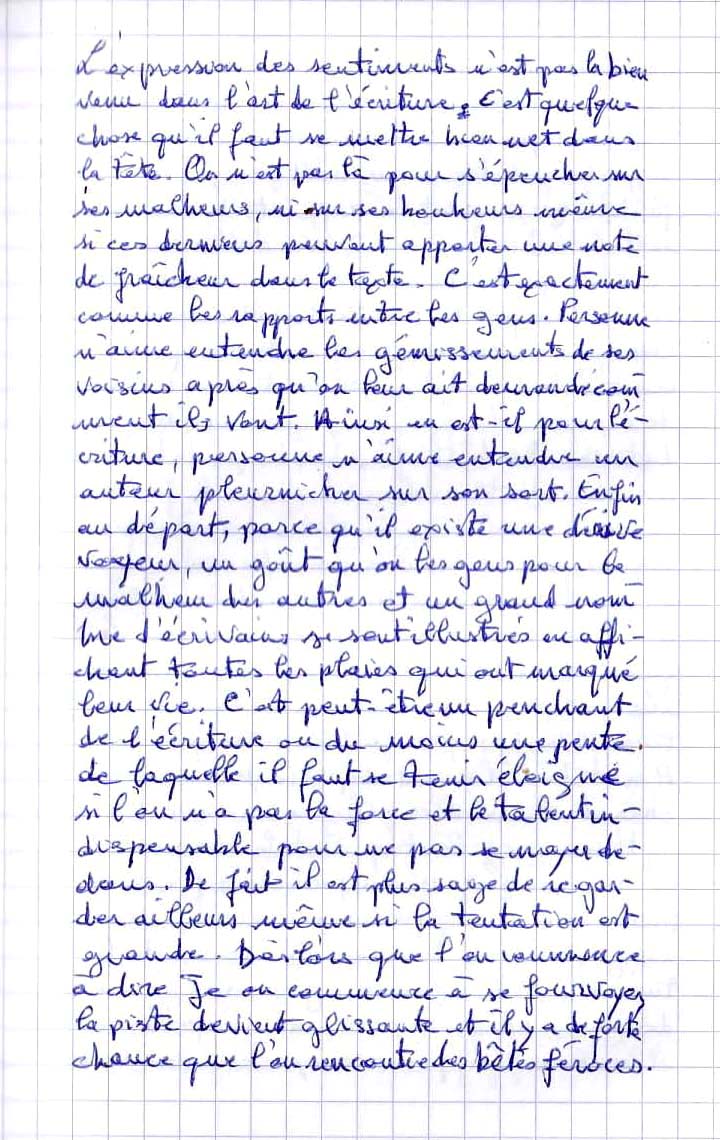 L'expression des sentiments n'est pas la bien
venu dans l'art de l'écriture, c'est quelque
chose qu'il faut se mettre bien net dans
la tête. On n'est pas là pour s'épencher sur
ses malheurs, ni sur ses bonheurs même
si ces derniers peuvent apporter une note
de fraîcheur dans le texte. C'est exactement
comme les rapports entre les gens. Personne
n'aime entendre les gémissements de ses
voisins après qu'on leur ait demandé com
ment ils vont. Ainsi en est-il pour l'é-
criture, personne n'aime entendre un
auteur pleurnicher sur son sort. Enfin
au départ, parce qu'il existe une dérive
voyeur, un goût qu'on les gens pour le
malheur des autres et un grand nom
bre d'écrivains se sont illustrés en affi-
chant toutes les plaies qui ont marqué
leur vie. C'est peut-être un penchant
de l'écriture ou du moins une pente.
de laquelle il faut se tenir éloigné
si l'on n'a pas la force et le talent in-
dispensable pour ne pas se noyer de-
dans. De fait il est plus sage de regar-
der ailleurs même si la tentation est
grande. Dès lors que l'on commence
à dire Je on commence à se fourvoyer,
la piste devient glissante et il y a de forte
chance que l'on rencontre des bêtes féroces.